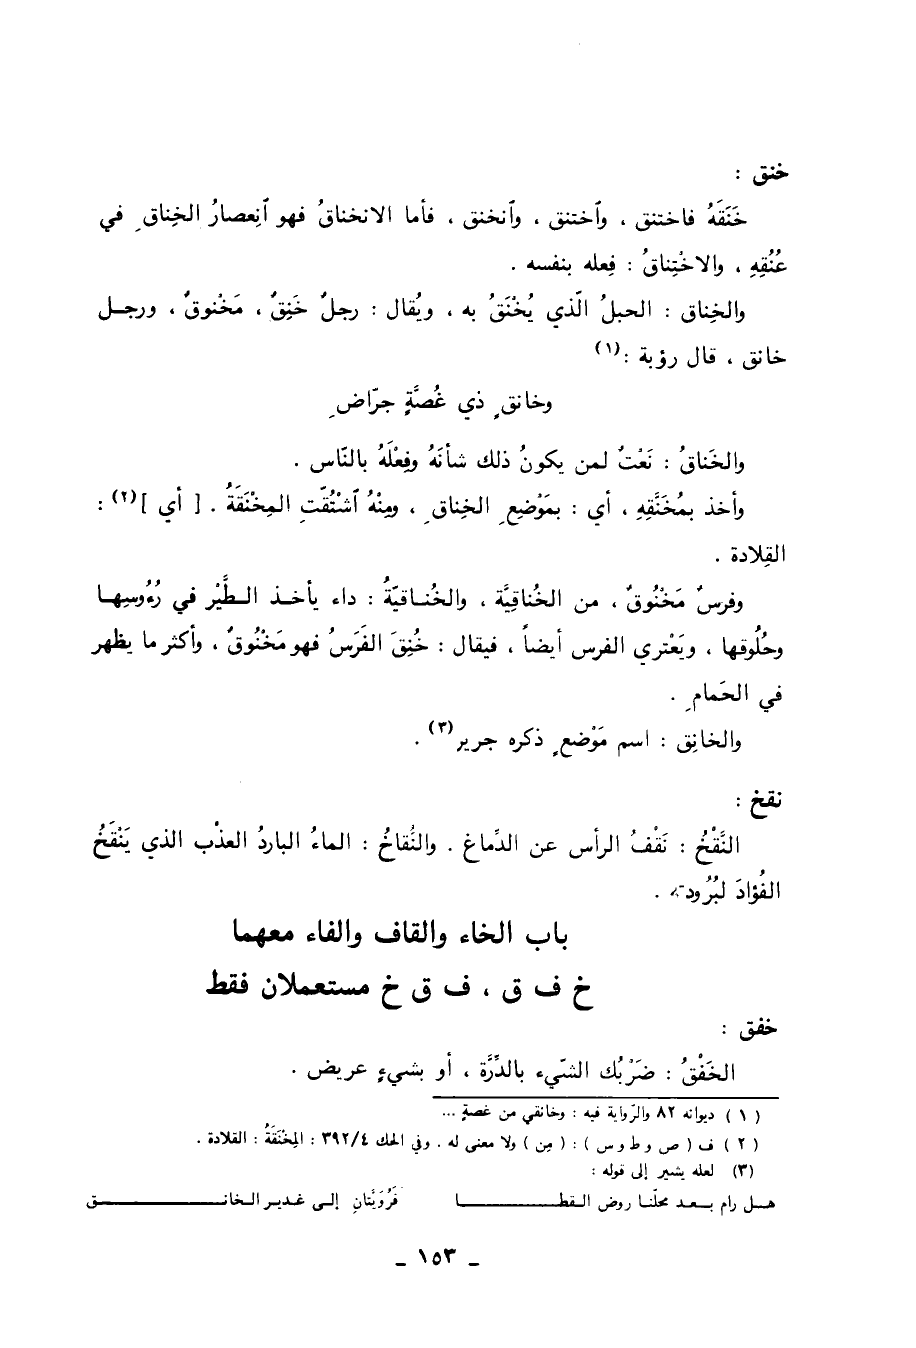 خنق :
خَنَقَهُ فاختنق ، وٱختنق ، وٱنخنق ، فأما الانخناقُ فهو ٱنِعصارُ الخِناقِ في
عُنُقِهِ ، والاخْتِناقُ : فِعله بنفسه .
والخِناق : الحبلُ الّذي يُخْنَقُ به ، ويُقال : رجلٌ خَنِقٌ ، مَخْنوقٌ ، ورجل
خانق ، قال رؤبة :(١)
وخانقٍ ذي غُصَّةٍ جرّاضِ
والخَناقُ : نَعْتُ لمن يكونُ ذلك شأنَهُ وفِعْلَهُ بالنّاس .
وأخذ بمُخَنَّقِهِ ، أي : بمَوْضِعِ الخِناقِ ، ومِنْهُ ٱشْتُقّتِ المِخْنَقَةُ . [ أي ](٢) :
القِلادة .
وفرسٌ مَخْنُوقٌ ، من الخُناقِيَّة ، والخُناقيّةُ : داء يأخذ الطَّيْر في رُءُوسِها
وحُلُوقها ، ويَعْتري الفرس أيضاً ، فيقال : خُنِقَ الفَرَسُ فهو مَخْنُوقٌ ، وأكثر ما يظهر
في الحَمامِ .
والخانِق : اسم مَوْضعٍ ذكره جرير(٣) .
نقخ :
النَّقْخُ : نَقْفُ الرأس عن الدِّماغ . والنُّقاخُ : الماءُ الباردُ العذْب الذي يَنْقَخُ
الفُؤادَ لبُرُودته .
باب الخاء والقاف والفاء معهما
خ ف ق ، ف ق خ مستعملان فقط
خفق :
الخَفْقُ : ضَرْبُك الشّيء بالدِّرَّة ، أو بشيءٍ عريض .
( ١ ) ديوانه ٨٢ والرّواية فيه : وخانقي من غصةٍ ...
( ٢ ) ف ( ص و ط و س ) : ( مِن ) ولا معنى له . وفي المحك ٣٩٢/٤ : المِخْنَقَةُ : القلادة .
(٣) لعله يشير إلى قوله :
هل رام بعد محلّنا روض القطا فَرُوَيَّتانِ إلى غدير الخانق
ـ ١٥٣ ـ